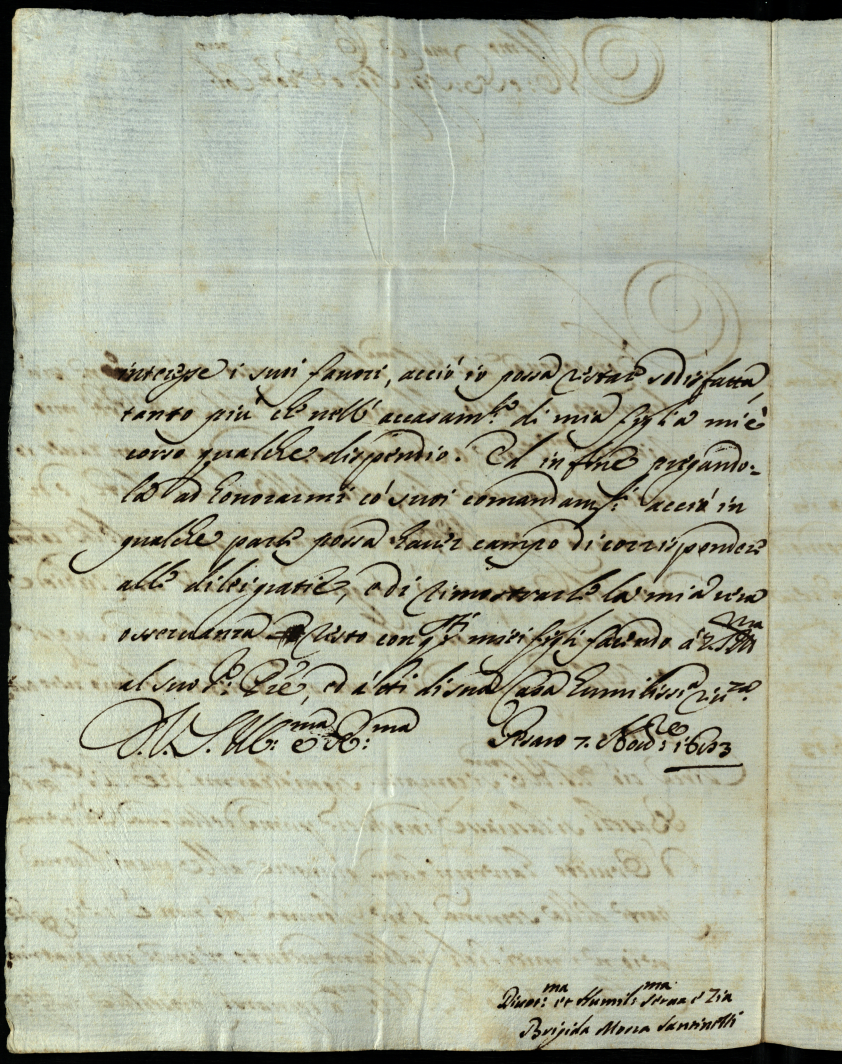 interesse i suoi favori, acciò io possa restar sodisfatta,
tanto più che nell' accasam.to di mia figlia m'è
corso qualche dispendio. Ed in fine pregando=
la ad honorarmi co' suoi comandam.ti acciò in
qualche parte possa haver campo di corrispondere
alle di lei gratie, e di rimostrarle la mia vera
osservanza resto con q.ti miei figli facendo à V.S. Ill.ma
al suo S.r Pre, ed à tti di sua Casa humiliss.a riv.za
D.V.S. Ill.ma e R.ma
Pesaro 7. Nov.re 1693
Divot.ma et Humil.ma Serva e Zia
Brigida Mosca Santinelli